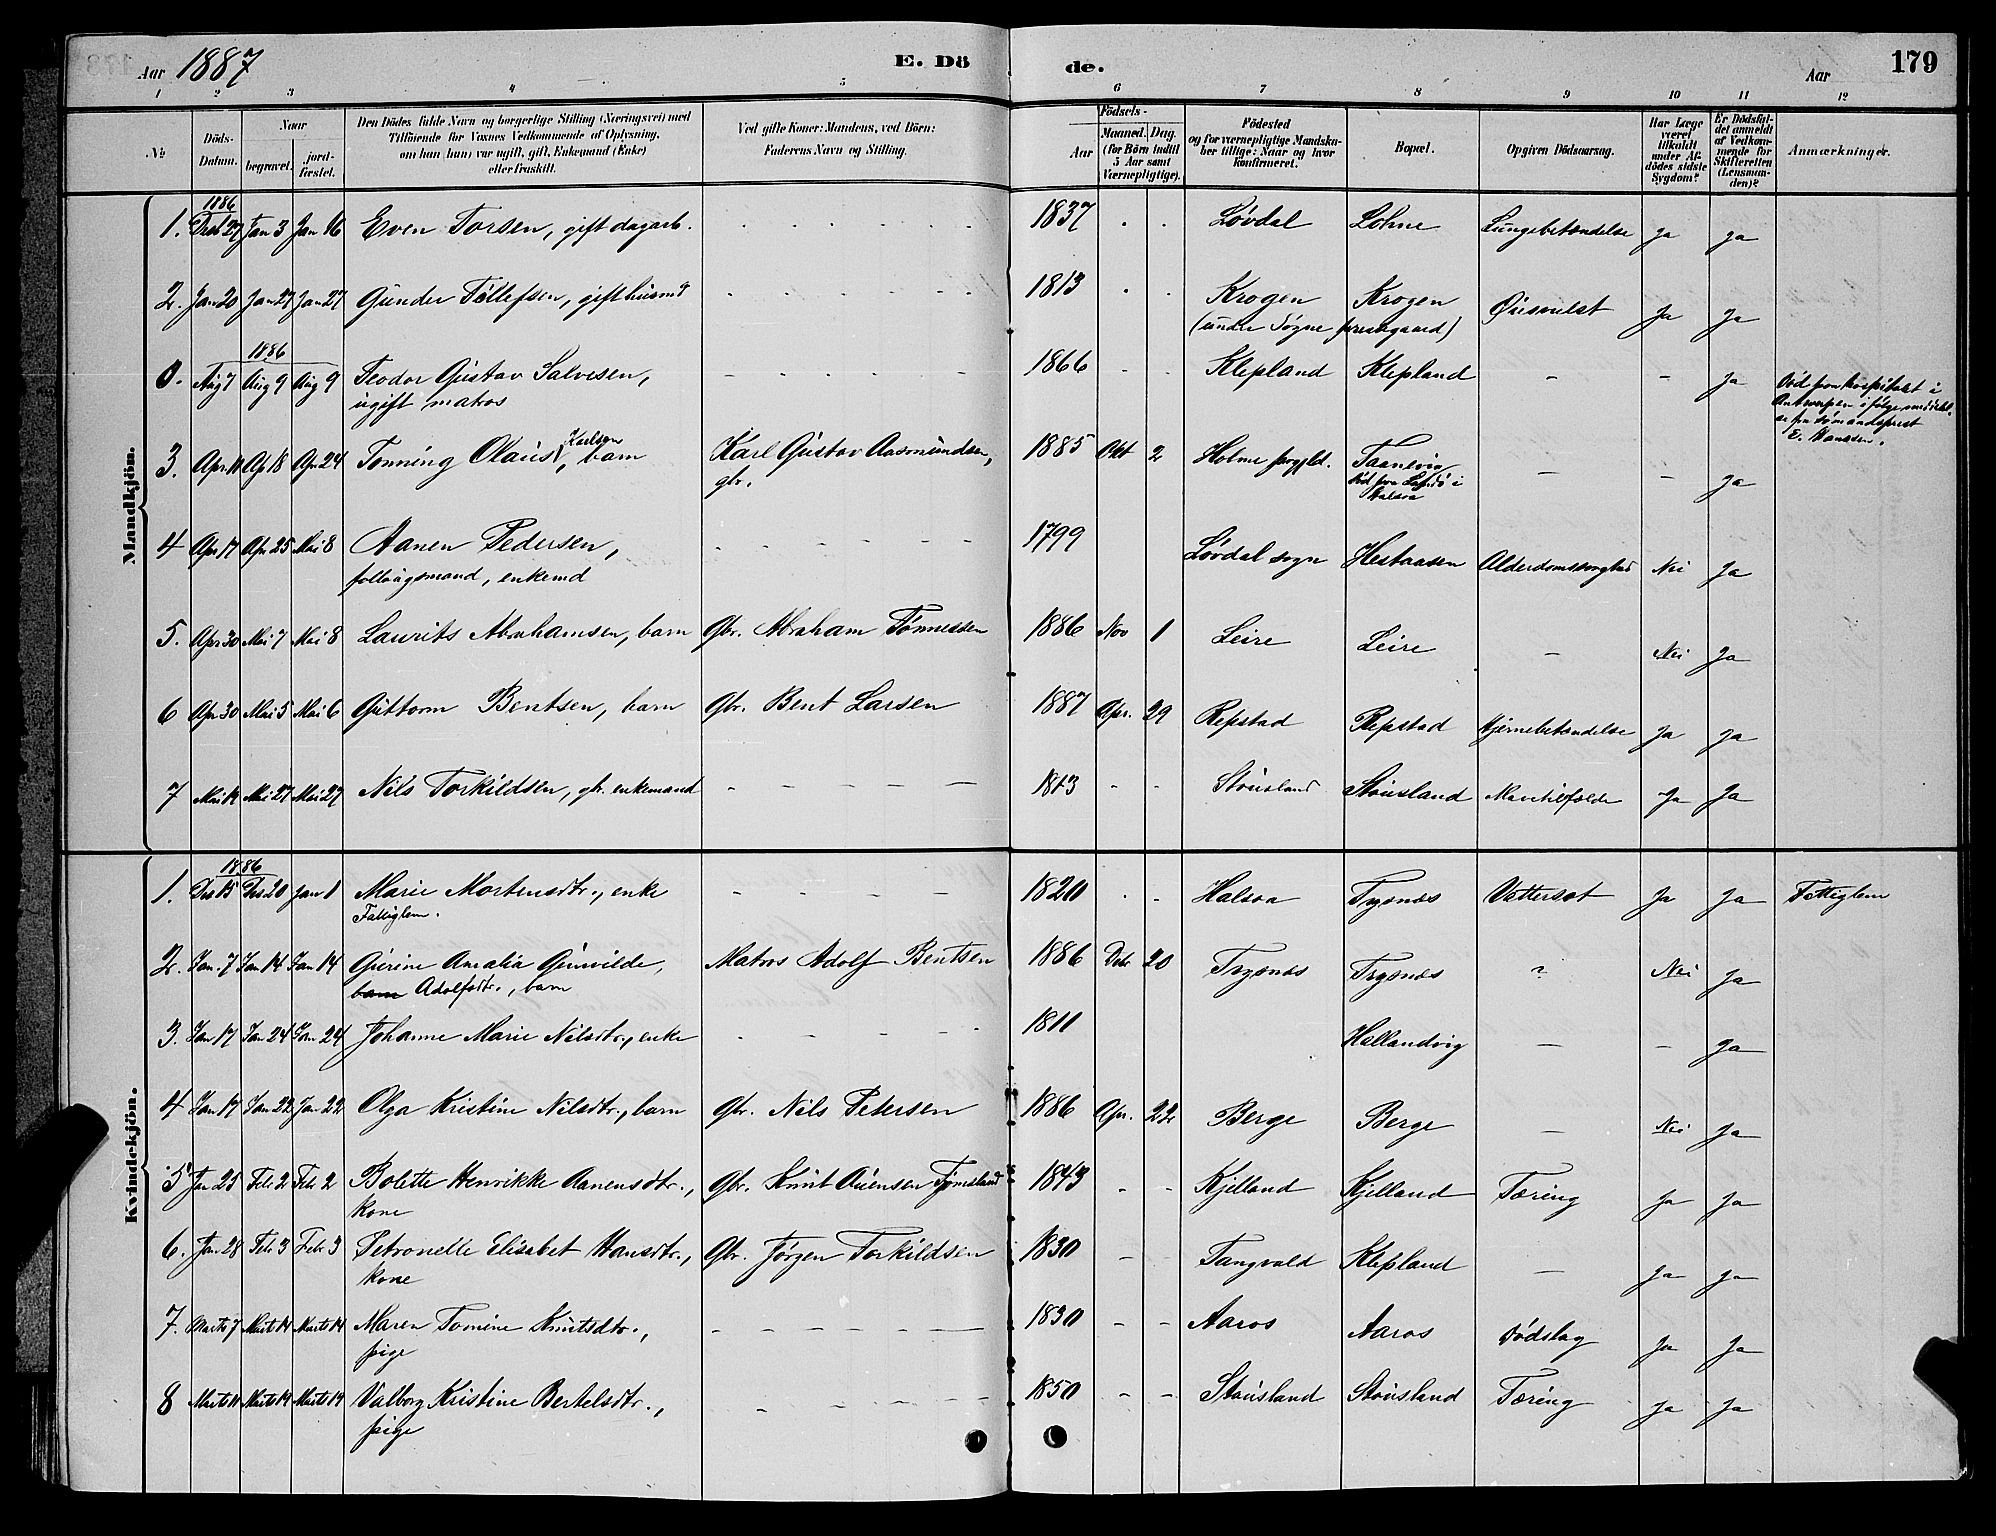 Aar 1887
E. Dö
de.
Aar
179
1 2 3 4 5 6 7 8 9 10 11 12
№
Döds-
Datum.
Naar
begravet.
jord-
fæstet.
Den Dödes fulde Navn og borgerlige Stilling (Næringsvei) med
Tilföiende for Voxnes Vedkommende af Oplysning,
om han (hun) var ugift, gift, Enkemand (Enke)
eller fraskilt.
Ved gifte Koner: Mandens, ved Börn:
Faderens Navn og Stilling.
Födsels-
Aar
Maaned. Dag.
(for Börn indtil
5 Aar samt
Værnepligtige).
Födested
og for værnepligtige Mandska-
ber tillige: Naar og hvor
konfirmeret.
Bopæl.
Opgiven Dödsaarsag.
Har Læge
været
tilkaldt
under Af-
dödes sidste
Sygdom?
Er Dödsfal-
det anmeldt
af Vedkom-
mende for
Skifteretten
(Lensman-
den)?
Anmærkninger.
Mandkjön.
1886
1. Desb 27 Jan 3 Jan 16 Even Torsen, gift dagarb. 1837 Løvdal Lohne Lungebetændelse Ja Ja
2. Jan 20 Jan 27 Jan 27 Gunder Tellefsen, gift husmd 1813 Krogen Krogen Ja Ja
(under Søgne prestegaard)
1886
0. Aug 7 Aug 9 Aug 9 Teodor Gustav Salvesen, 1866 Klepland Klepland — — Ja
ugift matros
Død paa hospitalet i
Antwerpen ifølge meddelel-
se fra sømandsprest
E. Hansten.
3. Apr 11 Ap 18 Apr 24 Tønning Olaus Karlsen, barn Karl Gustav Aasmundsen, 1885 Okt 2 Holme prgjld. — — Ja
gbr.
4 Apr 17 Apr 25 Mai 8 Aanen Pedersen, 1799 Løvdal sogn Hestaasen Nei Ja
follaugsmand, enkemd
5. Apr 30 Mai 7 Mai 8 Laurits Abrahamsen, barn Gbr. Abraham Tønnessen 1886 Nov 1 Leire Leire — Nei Ja
6 Apr 30 Mai 5 Mai 6 Guttorm Bentsen, barn Gbr. Bent Larsen 1887 Apr. 29 Repstad Repstad Hjernebetændelse Ja Ja
7 Mai 14 Mai 27 Mai 27 Nils Torkildsen, gbr. enkemand 1813 Stousland Stousland Ja Ja
Kvindekjön.
1886
1. Des 15 Des 20 Jan 1 Marie Mortensdtr., enke 1820 Halsaa Trysnæs Vattersot Ja Ja Fattiglem
Fattiglem.
2. Jan. 7 Jan 14 Jan 14 Gurine Amalia Gunvilde, Matros Adolf Bentsen 1886 Debr 20 Trysnæs Trysnæs ? Nei Ja
barn Adolfsdtr., barn
3. Jan 17 Jan 24 Jan 24 Johanne Marie Nilsdtr., enke 1811 Hallandvig — — Ja
4 Jan 17 Jan 22 Jan 22 Olga Kristine Nilsdtr., barn Gbr. Nils Petersen 1886 Apr. 22 Berge Berge — Nei Ja
5 Jan 25 Feb 2 Feb 2 Bolette Henrikke Aanensdtr., Gbr. Knut Auensen Tjomsland 1843 Kjelland Kjelland Tæring Ja Ja
kone
6. Jan 28 Feb 3 Febr 3 Petronelle Elisabet Hansdtr., Gbr. Jørgen Torkildsen 1830 Tangvald Klepland — Ja Ja
kone
7. Marts 7 Marts 14 Marts 14 Maren Tomine Knutsdtr., 1830 Aaros Aaros Dødslag Ja Ja
pige
8 Marts 11 Marts 19 Marts 19 Valborg Kristine Bertelsdtr., 1850 Stousland Stousland Tæring Ja Ja
pige